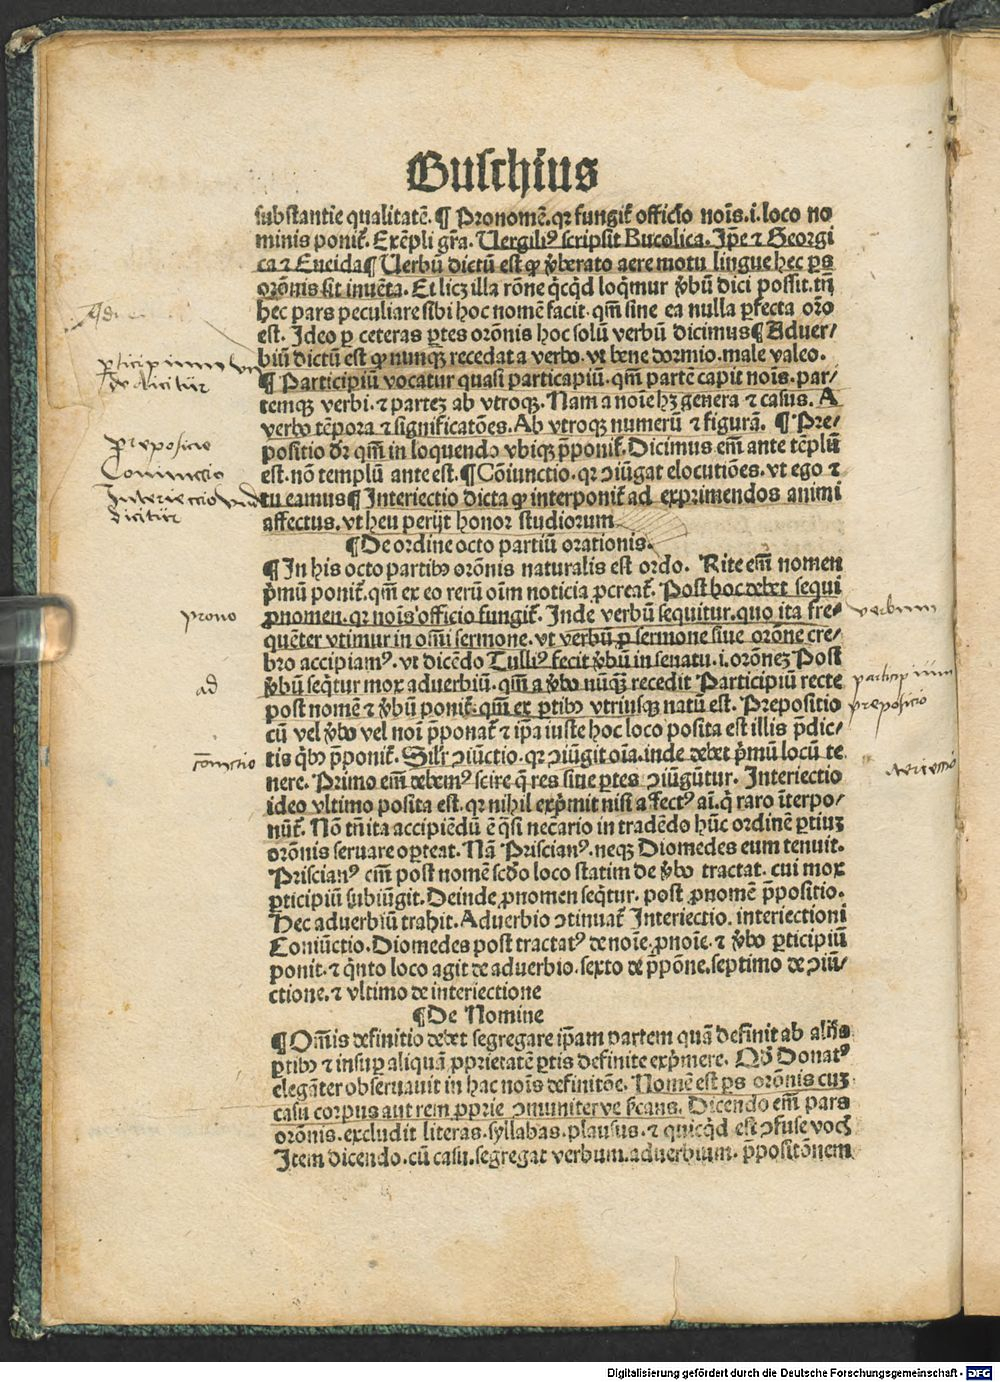 Buschius
substantie qualitatē. ¶ Pronomē. qꝛ fungiť officio noīs .i. loco no
minis poniť. Exēpli gr̄a. Uergiliꝰ scripsit Bucolica. Ip̄e ⁊ Georgi
ca ⁊ Eneida ¶ Uerbū dictū est ꝙ v̓berato aere motu lingue hec ꝑs
orōnis sit inuēta. Et licꝫ illa rōne qͥcqͥd loqͥmur v̓bū dici possit. tn̄
hec pars peculiare sibi hoc nomē facit. qm̄ sine ea nulla ꝑfecta or̄o
est. Ideo ꝑ ceteras ꝑtes orōnis hoc solū verbū dicimus ¶ Aduer-
biū dictū est ꝙ nunqꝫ recedat a verbo. vt bene dormio. male valeo.
¶ Participiū vocatur quasi particapiū. qm̄ partē capit noīs. par-
temqꝫ verbi. ⁊ partez ab vtroqꝫ. Nam a noīe hꝫ genera ⁊ casus. A
verbo tēpora ⁊ significatōes. Ab vtroqꝫ numerū ⁊ figurā. ¶ Pre-
positio dꝛ qm̄ in loquendo vbiqꝫ p̄poniť. Dicimus em̄ ante tēplū
est. nō templū ante est. ¶ Cōiunctio. qꝛ ↄiūgat elocutiōes. vt ego ⁊
tu eamus ¶ Interiectio dicta ꝙ interponiť ad exprimendos animi
affectus. vt heu perijt honor studiorum
¶ De ordine octo partiū orationis.
¶ In his octo partibꝰ orōnis naturalis est ordo. Rite em̄ nomen
pͥmū poniť. qm̄ ex eo rerū oīm noticia ꝓcreať. Post hoc debet sequi
ꝓnomen. qꝛ noīs officio fungiť. Inde verbū sequitur. quo ita fre-
quēter vtimur in om̄i sermone. vt verbū ꝓ sermone siue orōne cre-
bro accipiamꝰ. vt dicēdo Tulliꝰ fecit v̓bū in senatu .i. orōneꝫ Post
v̓bū seqͥtur mox aduerbiū. qm̄ a v̓bo nūqꝫ recedit Participiū recte
post nomē ⁊ v̓bū poniť. qm̄ ex ꝑtibꝰ vtriusqꝫ natū est. Prepositio
cū vel v̓bo vel noī p̄ponať ⁊ ip̄a iuste hoc loco posita est illis p̄dic-
tis qͥbꝰ p̄poniť. Silꝛ ↄiūctio. qꝛ ↄiūgit oīa. inde debet pͥmū locū te
nere. Primo em̄ debemꝰ scire q̄ res siue ꝑtes ↄiūgūtur. Interiectio
ideo vltimo posita est. qꝛ nihil expͥmit nisi affectꝰ aī. qͥ raro īterpo-
nūť. Nō tn̄ ita accipiēdū ē qͣsi necario in tradēdo hūc ordinē ꝑtiuꝫ
orōnis seruare oꝑteat. Nā Priscianꝰ. neqꝫ Diomedes eum tenuit.
Priscianꝰ em̄ post nomē scd̄o loco statim de v̓bo tractat. cui mox
ꝑticipiū subiūgit. Deinde ꝓnomen seqͥtur. post ꝓnomē p̄positio.
Hec aduerbiū trahit. Aduerbio ↄtinuať Interiectio. interiectioni
Coniūctio. Diomedes post tractatꝰ de noīe. ꝓnoīe. ⁊ v̓bo ꝑticipiū
ponit. ⁊ qͥnto loco agit de aduerbio. sexto de p̄pōne. septimo de ↄiū-
ctione. ⁊ vltimo de interiectione
¶ De Nomine
¶ Om̄is definitio debet segregare ip̄am partem quā definit ab alijs
ꝑtibꝰ ⁊ insuꝑ aliquā ꝓprietatē ꝑtis definite expͥmere. Qd̓ Donatꝰ
elegāter obseruauit in hac noīs definitōe. Nomē est ꝑs orōnis cuꝫ
casu corpus aut rem ꝓprie ↄmuniterve sͥcans. Dicendo em̄ pars
orōnis. excludit literas. syllabas. plausus. ⁊ quicqͥd est ↄfuse vocꝭ
Item dicendo. cū casu. segregat verbum. aduerbium. p̄positōnem
ꝑticipium
de dicitur
preposicio
Coniunctio
Interieccio
dicitur
prono
verbum
ad
participium
preposicio
cōiunctio
Digitalisierung gefördert durch die Deutsche Forschungsgemeinschaft - DFG